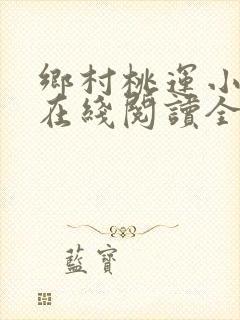 鄉村桃運小
在綫閱讀全
藍寶